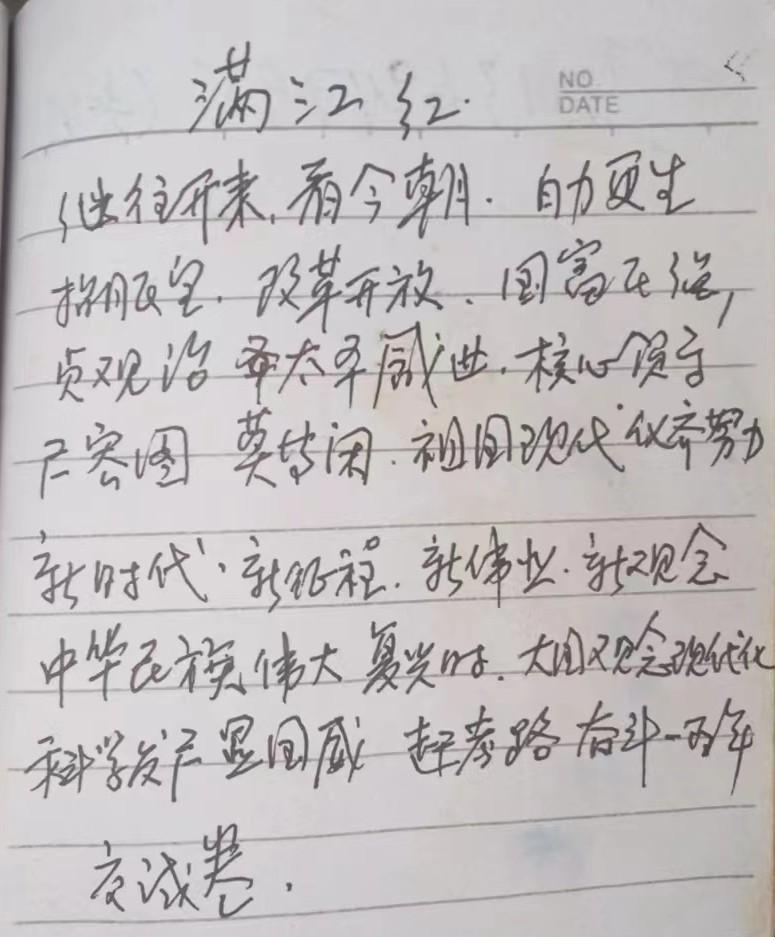 满江红.
NO
DATE
继往开来,看今朝. 自力更生
招展红星. 改革开放. 国富民强,
贞观治 太平盛世. 核心领导
宏图 莫等闲. 祖国现代化齐努力
新时代、新征程. 新伟业. 新观念
中华民族伟大复兴时. 大国观念现代化
科学发广显国威 赶考路 奋斗一百年
交试卷.